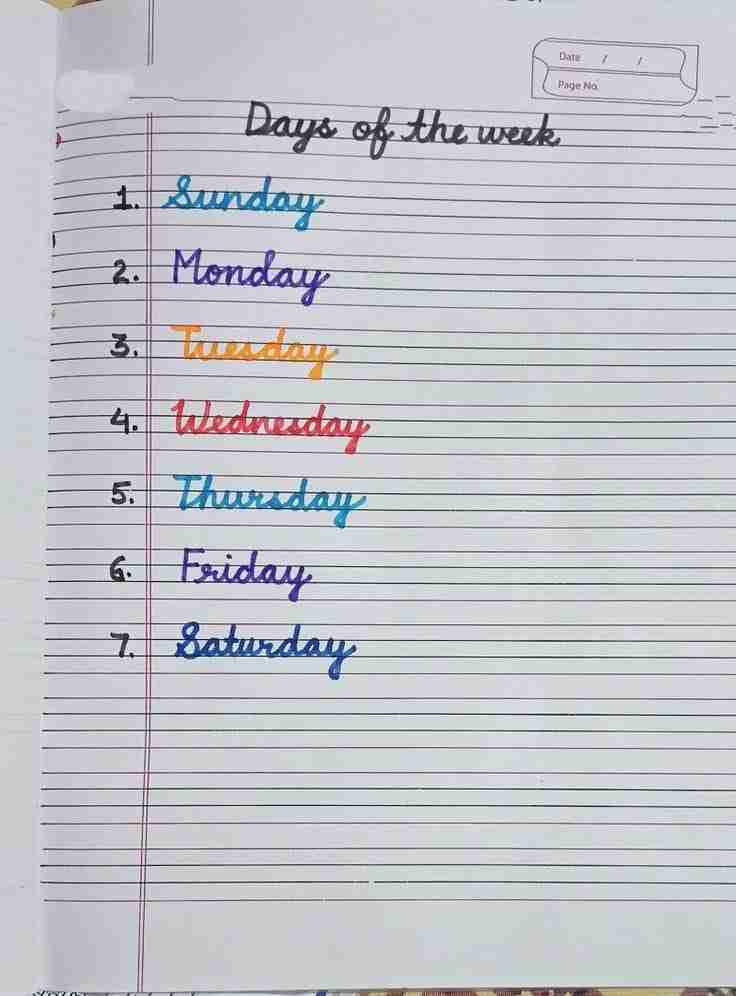 Date / /
Page No.
Days of the week
1. Sunday
2. Monday
3. Tuesday
4. Wednesday
5. Thursday
6. Friday
7. Saturday